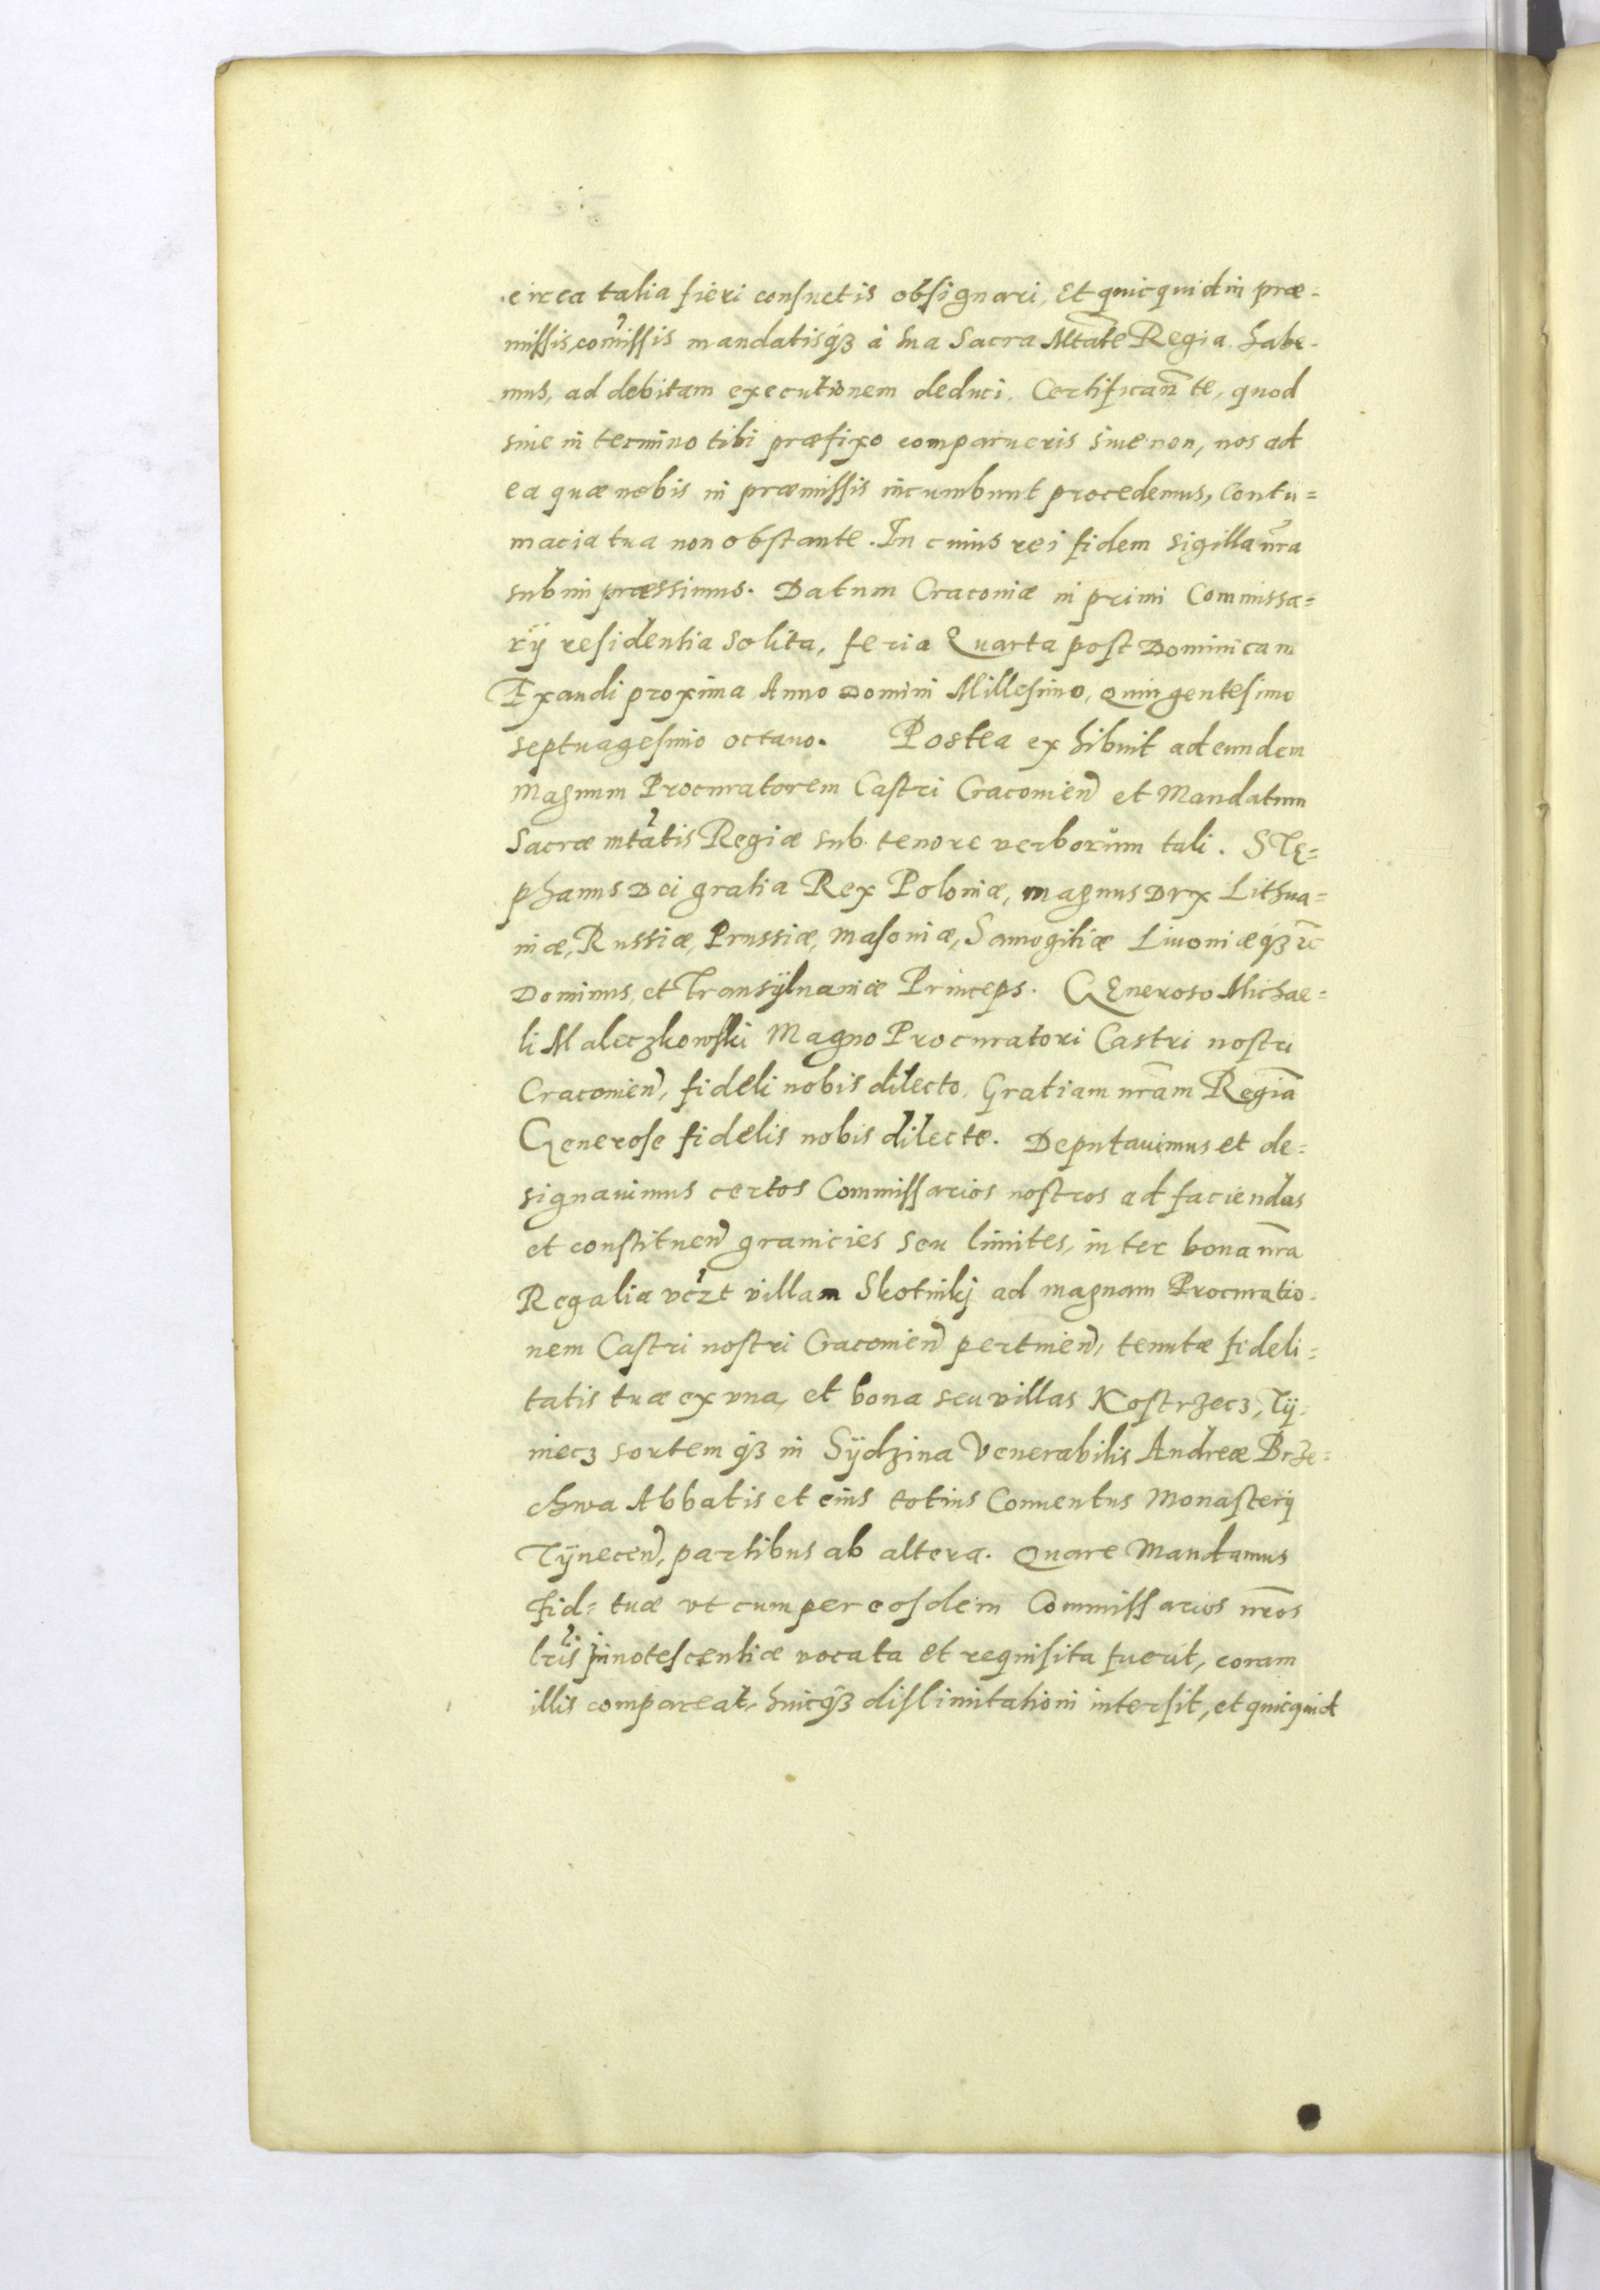 circa talia fieri consuetis obsignari, Et quicquid in præ=
missis, com̃issis mandatisq̃ȝ à sua Sacra Mtãte Regia habe-
mus, ad debitam executionem deduci. Certifican̄ te, quod
siue in termino tibi præfixo comparueris siue non, nos ad
ea quæ nobis in præmissis incumbunt procedemus, Contu=
macia tua non obstante. In cuius rei fidem sigilla nr̃a
subim præssimus. Datum Cracoviæ in primi Commissa=
rÿ residentia solita, feria Quarta post Dominicam
Exaudi proxima Anno Domini Millesimo, Quingentesimo
septuagesimo octauo. Postea exhibuit ad eundem
Magnum Procuratorem Castri Cracouien̄ et Mandatum
Sacræ mtãtis Regiæ sub tenore verborum tali. STE=
phanus Dei gratia Rex Poloniæ, magnus Dux Lithua=
niæ, Russiæ, Prussiæ, Masouiæ, Samogitiæ Liuoniæq̃ȝ &c
Dominus, et Transÿluaniæ Princeps. GEneroso Michae=
li Maleczkowski Magno Procuratori Castri nostri
Cracouien̄, fideli nobis dilecto. Gratiam nr̃am Regiã
Generose fidelis nobis dilecte. Deputauimus et de=
signauimus certos Commissarios nostros ad faciendas
et constituen̄ granicies seu limites, inter bona nr̃a
Regalia vczt villam Skotnikj ad magnam Procuratio-
nem Castri nostri Cracouien̄ pertinen̄, tenutæ fideli=
tatis tuæ ex vna, et bona seu villas Kostrzecz, Tÿ-
niecz sortem q̃ȝ in Sÿdzina Venerabilis Andreæ Brze=
chwa Abbatis et eius totius Conuentus Monasterÿ
Tÿnecen̄, partibus ab altera. Quare Mandamus
Fid= tuæ vt cum per eosdem Commissarios nr̃os
lr̃is innotescentiæ vocata et requisita fuerit, coram
illis compareat, huicq̃ȝ dislimitationi intersit, et quicquid